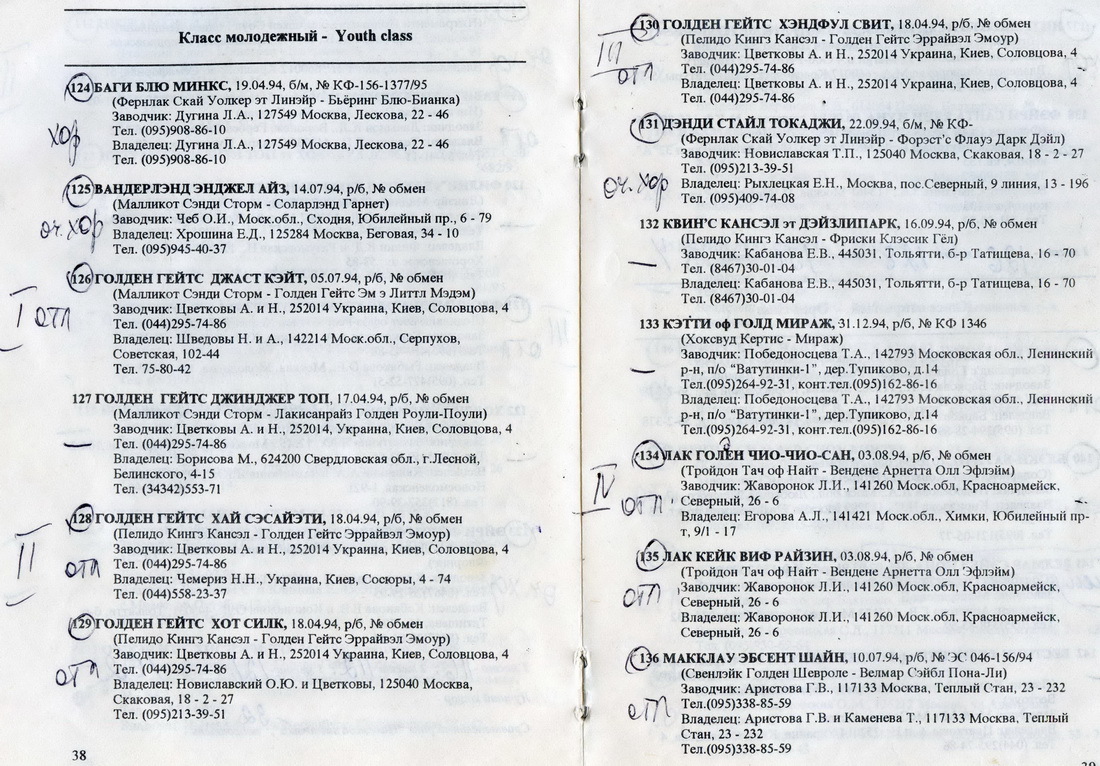 Класс молодежный - Youth class
124 БАГИ БЛЮ МИНКС, 19.04.94, б/м, № КФ-156-1377/95
(Фернлак Скай Уолкер эт Линэйр - Бьёринг Блю-Бианка)
Заводчик: Дугина Л.А., 127549 Москва, Лескова, 22 - 46
хор
Тел. (095)908-86-10
Владелец: Дугина Л.А., 127549 Москва, Лескова, 22 - 46
Тел. (095)908-86-10
125 ВАНДЕРЛЭНД ЭНДЖЕЛ АЙЗ, 14.07.94, р/б, № обмен
(Малликот Сэнди Сторм - Соларлэнд Гарнет)
Заводчик: Чеб О.И., Моск.обл., Сходня, Юбилейный пр., 6 - 79
оч. хор
Владелец: Хрошина Е.Д., 125284 Москва, Беговая, 34 - 10
Тел. (095)945-40-37
126 ГОЛДЕН ГЕЙТС ДЖАСТ КЭЙТ, 05.07.94, р/б, № обмен
(Малликот Сэнди Сторм - Голден Гейтс Эм э Литтл Мэдэм)
Заводчик: Цветковы А. и Н., 252014 Украина, Киев, Соловцова, 4
I отл
Тел. (044)295-74-86
Владелец: Шведовы Н. и А., 142214 Моск.обл., Серпухов,
Советская, 102-44
Тел. 75-80-42
127 ГОЛДЕН ГЕЙТС ДЖИНДЖЕР ТОП, 17.04.94, р/б, № обмен
(Малликот Сэнди Сторм - Лакисанрайз Голден Роули-Поули)
Заводчик: Цветковы А. и Н., 252014, Украина, Киев, Соловцова, 4
Тел. (044)295-74-86
Владелец: Борисова М., 624200 Свердловская обл., г.Лесной,
Белинского, 4-15
Тел. (34342)553-71
128 ГОЛДЕН ГЕЙТС ХАЙ СЭСАЙЭТИ, 18.04.94, р/б, № обмен
(Пелидо Кингз Кансэл - Голден Гейтс Эррайвэл Эмоур)
Заводчик: Цветковы А. и Н., 252014 Украина, Киев, Соловцова, 4
II отл
Тел. (044)295-74-86
Владелец: Чемериз Н.Н., Украина, Киев, Сосюры, 4 - 74
Тел. (044)558-23-37
129 ГОЛДЕН ГЕЙТС ХОТ СИЛК, 18.04.94, р/б, № обмен
(Пелидо Кингз Кансэл - Голден Гейтс Эррайвэл Эмоур)
Заводчик: Цветковы А. и Н., 252014 Украина, Киев, Соловцова, 4
отл
Тел. (044)295-74-86
Владелец: Новиславский О.Ю. и Цветковы, 125040 Москва,
Скаковая, 18 - 2 - 27
Тел. (095)213-39-51
38
130 ГОЛДЕН ГЕЙТС ХЭНДФУЛ СВИТ, 18.04.94, р/б, № обмен
(Пелидо Кингз Кансэл - Голден Гейтс Эррайвэл Эмоур)
III отл
Заводчик: Цветковы А. и Н., 252014 Украина, Киев, Соловцова, 4
Тел. (044)295-74-86
Владелец: Цветковы А. и Н., 252014 Украина, Киев, Соловцова, 4
Тел. (044)295-74-86
131 ДЭНДИ СТАЙЛ ТОКАДЖИ, 22.09.94, б/м, № КФ-
(Фернлак Скай Уолкер эт Линэйр - Форэст'с Флауэ Дарк Дэйл)
Заводчик: Новиславская Т.П., 125040 Москва, Скаковая, 18 - 2 - 27
Тел. (095)213-39-51
оч. хор
Владелец: Рыхлецкая Е.Н., Москва, пос.Северный, 9 линия, 13 - 196
Тел. (095)409-74-08
132 КВИН'С КАНСЭЛ эт ДЭЙЗЛИПАРК, 16.09.94, р/б, № обмен
(Пелидо Кингз Кансэл - Фриски Клэссик Гёл)
Заводчик: Кабанова Е.В., 445031, Тольятти, б-р Татищева, 16 - 70
Тел. (8467)30-01-04
Владелец: Кабанова Е.В., 445031, Тольятти, б-р Татищева, 16 - 70
Тел. (8467)30-01-04
133 КЭТТИ оф ГОЛД МИРАЖ, 31.12.94, р/б, № КФ 1346
(Хоксвуд Кертис - Мираж)
Заводчик: Победоносцева Т.А., 142793 Московская обл., Ленинский
р-н, п/о “Ватутинки-1”, дер.Тупиково, д.14
Тел.(095)264-92-31, конт.тел.(095)162-86-16
Владелец: Победоносцева Т.А., 142793 Московская обл., Ленинский
р-н, п/о “Ватутинки-1”, дер.Тупиково, д.14
Тел.(095)264-92-31, конт.тел.(095)162-86-16
134 ЛАК ГОЛЕН ЧИО-ЧИО-САН, 03.08.94, р/б, № обмен
(Тройдон Тач оф Найт - Вендене Арнетта Олл Эфлэйм)
Заводчик: Жаворонок Л.И., 141260 Моск.обл, Красноармейск,
IV отл
Северный, 26 - 6
Владелец: Егорова А.Л., 141421 Моск.обл., Химки, Юбилейный пр-
т, 9/1 - 17
135 ЛАК КЕЙК ВИФ РАЙЗИН, 03.08.94, р/б, № обмен
(Тройдон Тач оф Найт - Вендене Арнетта Олл Эфлэйм)
отл
Заводчик: Жаворонок Л.И., 141260 Моск.обл, Красноармейск,
Северный, 26 - 6
Владелец: Жаворонок Л.И., 141260 Моск.обл, Красноармейск,
Северный, 26 - 6
136 МАККЛАУ ЭБСЕНТ ШАЙН, 10.07.94, р/б, № ЭС 046-156/94
(Свенлэйк Голден Шевроле - Велмар Сэйбл Пона-Ли)
Заводчик: Аристова Г.В., 117133 Москва, Теплый Стан, 23 - 232
отл
Тел.(095)338-85-59
Владелец: Аристова Г.В. и Каменева Т., 117133 Москва, Теплый
Стан, 23 - 232
Тел.(095)338-85-59